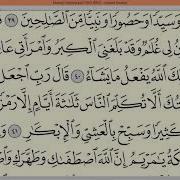 وَسَيِّدًا وَحَصُورًا وَنَبِيًّا مِّنَ ٱلصَّٰلِحِينَ ٣٩
لِى غُلَٰمٌ وَقَدْ بَلَغَنِىَ ٱلْكِبَرُ وَٱمْرَأَتِى
ٱللَّهُ يَفْعَلُ مَا يَشَآءُ ٤٠ قَالَ رَبِّ ٱجْعَل
أَلَّا تُكَلِّمَ ٱلنَّاسَ ثَلَٰثَةَ أَيَّامٍ إِلَّا رَمْزًا
وَسَبِّحْ بِٱلْعَشِىِّ وَٱلْإِبْكَٰرِ ٤١
يَٰمَرْيَمُ إِنَّ ٱللَّهَ ٱصْطَفَىٰكِ وَطَهَّرَكِ